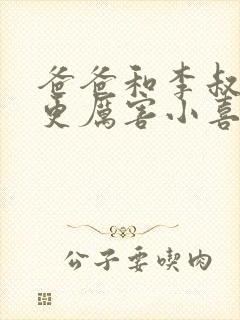 爸爸和李叔
更厲害小喜
公子要喫肉